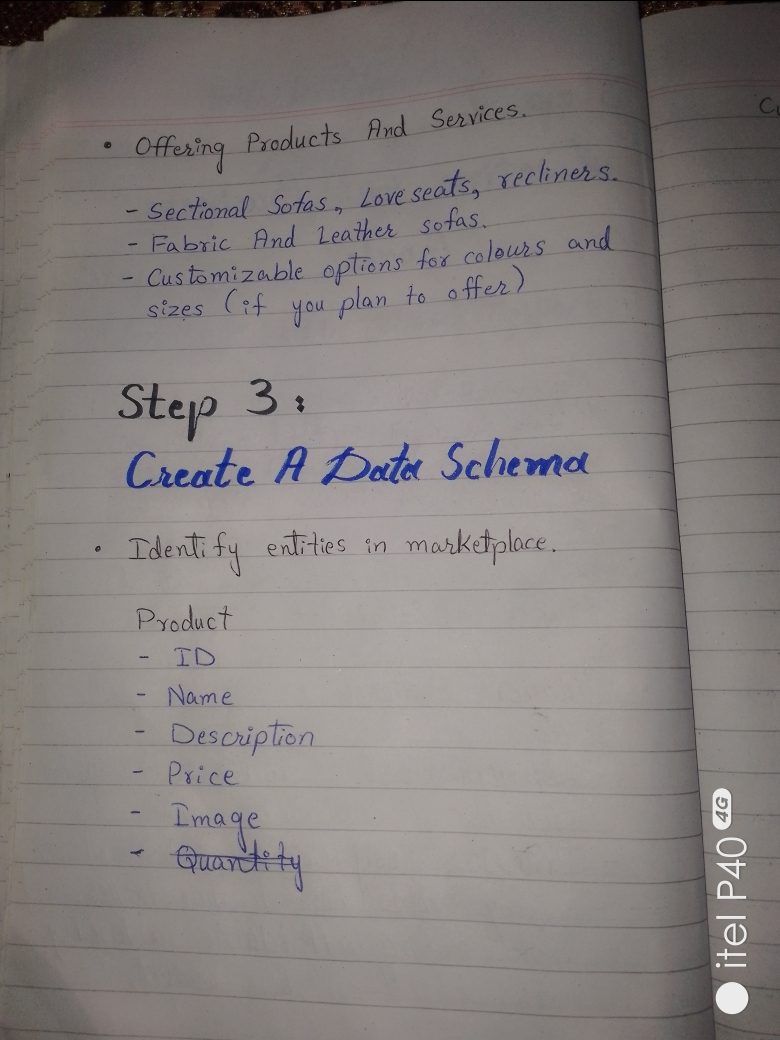 • Offering Products And Services.
- Sectional Sofas, Love seats, recliners.
- Fabric And Leather sofas.
- Customizable options for colours and
sizes (if you plan to offer)
Step 3:
Create A Data Schema
• Identify entities in marketplace.
Product
- ID
- Name
- Description
- Price
- Image
- Quantity
itel P40 4G